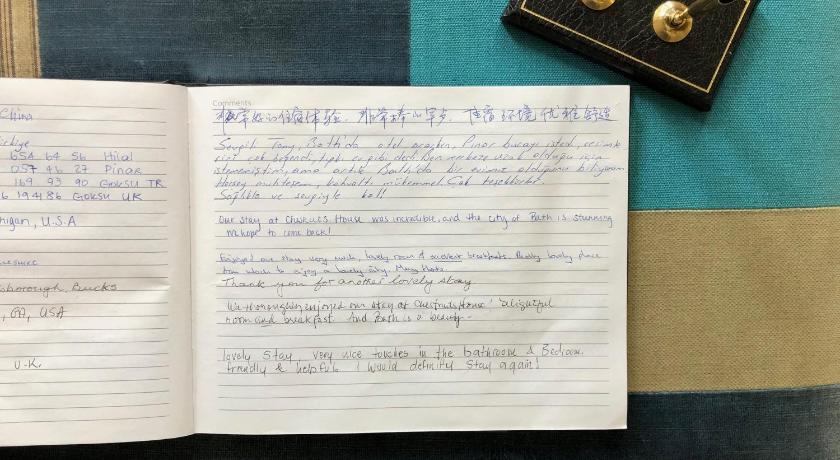 China
654 64 56 Hilal
057 46 27 Pinar
169 93 90 GOKSU TR
GOKSU UK
U.S.A
Bucks
USA
U.K.
Comments
非常好的住宿体验. 非常棒的早点. 住宿环境优雅舒适
Sevgili Tony, Bath'da otel ararken, Pınar burayı istedi, resimle
çok beğendi, tıpkı dedi. Ben merkeze uzak olduğu için
istememiştim, ama artık Bath'da bir evimiz olduğunu biliyorum
Herşey muhteşem, kahvaltı mükemmel. Çok teşekkürler.
Sağlıkla ve sevgiyle kal!
Our stay at Chestnuts House was incredible, and the city of Bath is stunning
We hope to come back!
Enjoyed our stay very much, lovely room & excellent breakfasts. Really lovely place
from which to enjoy a lovely city. Many thanks
Thank you for another lovely stay
We thoroughly enjoyed our stay at Chestnuts House! Delightful
room and breakfast. And Bath is a beauty-
lovely stay, very nice touches in the bathroom & Bedroom.
friendly & helpful I would definitly stay again!